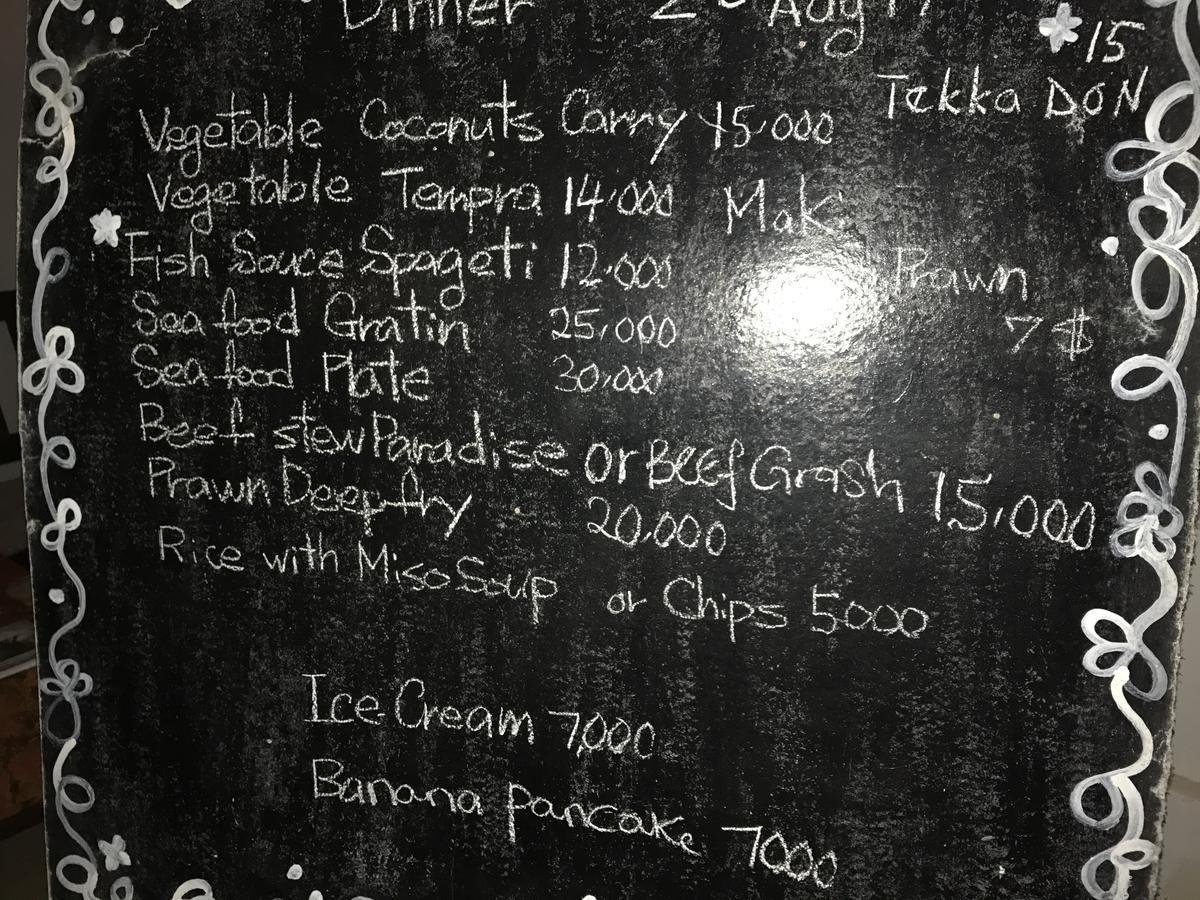 Dinner Aug 17
15
Tekka DON
Vegetable Coconuts Carry 15,000
Vegetable Tempra 14,000
Mak
Fish Sauce Spageti 12,000
Prawn
7 $
Sea food Gratin 25,000
Sea food Plate 30,000
Beef stew Paradise or Beef Grash 15,000
Prawn Deep fry 20,000
Rice with Miso Soup or Chips 5000
Ice Cream 7,000
Banana pancake 7000